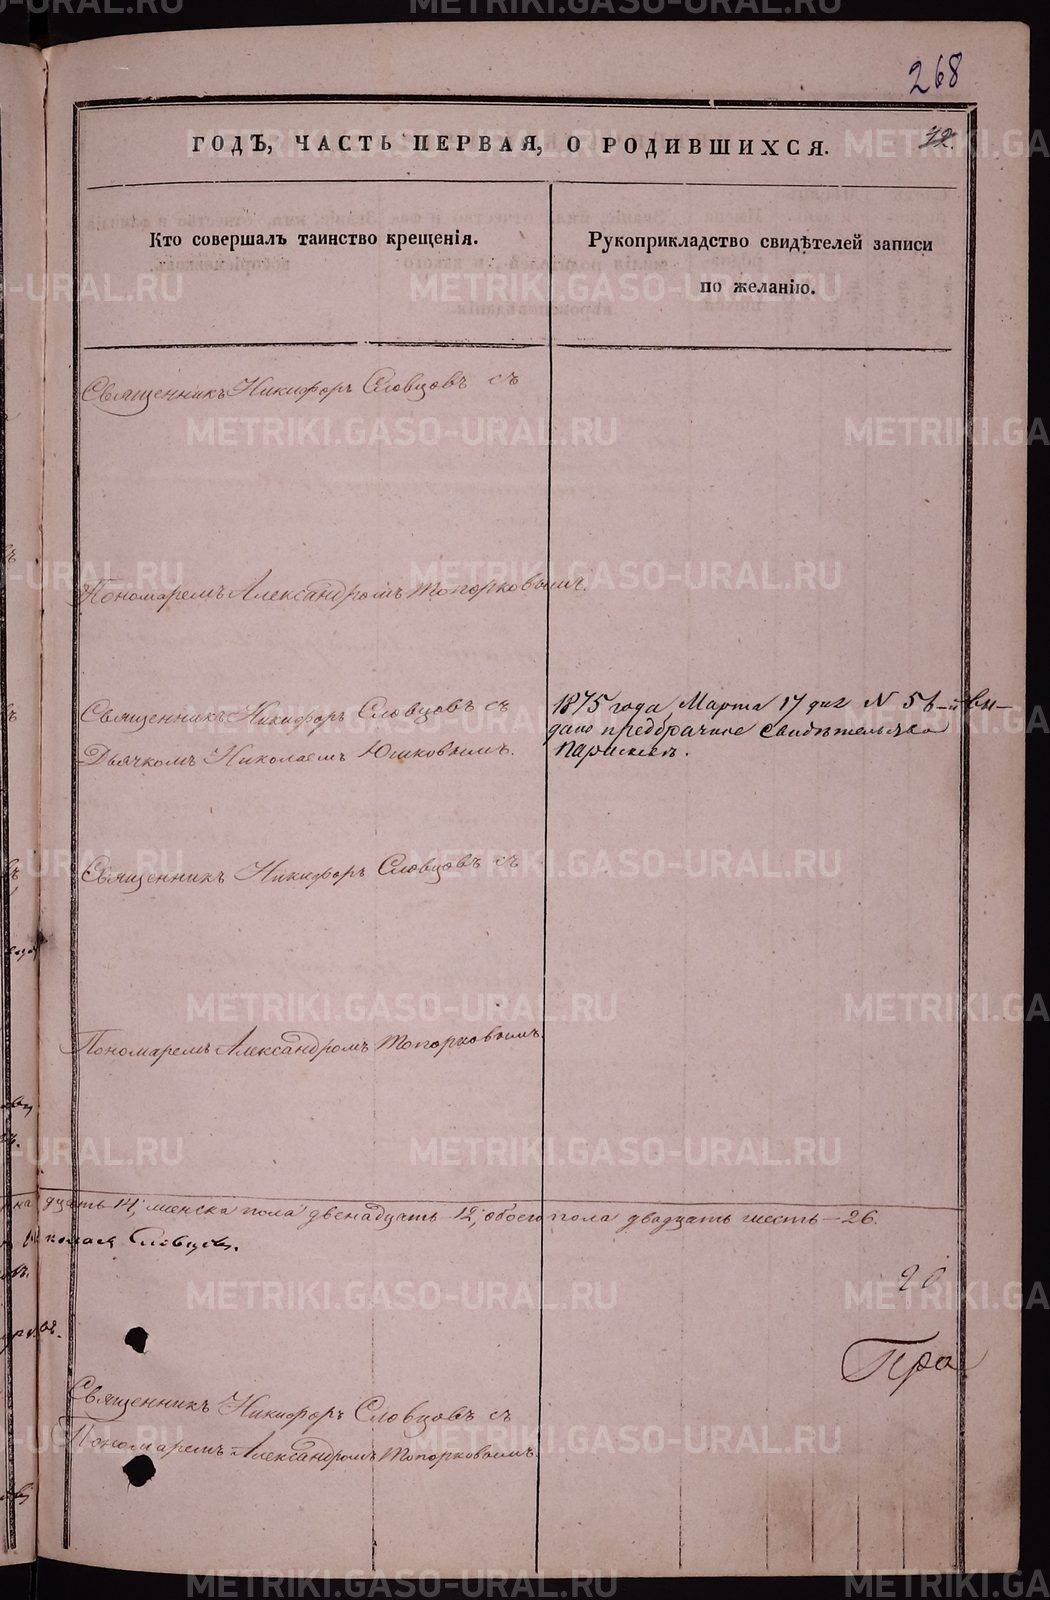 268
ГОДЪ, ЧАСТЬ ПЕРВАЯ, О РОДИВШИХСЯ.
Кто совершалъ таинство крещенія.
Рукоприкладство свидѣтелей записи
по желанію.
Священникъ Никифоръ Словцовъ съ
Пономаремъ Александромъ Топорковымъ.
Священникъ Никифоръ Словцовъ съ
Дьячкомъ Николаемъ Юшковымъ.
1875 года Марта 17 дня N 56-й вы-
дано предбрачное свидѣтельство
Священникъ Никифоръ Словцовъ съ
Пономаремъ Александромъ Топорковымъ.
дцать 14, женска пола двенадцать 12, обоего пола двадцать шесть – 26.
Словцовъ.
Пра
Священникъ Никифоръ Словцовъ съ
Пономаремъ Александромъ Топорковымъ.
METRIKI.GASO-URAL.RU